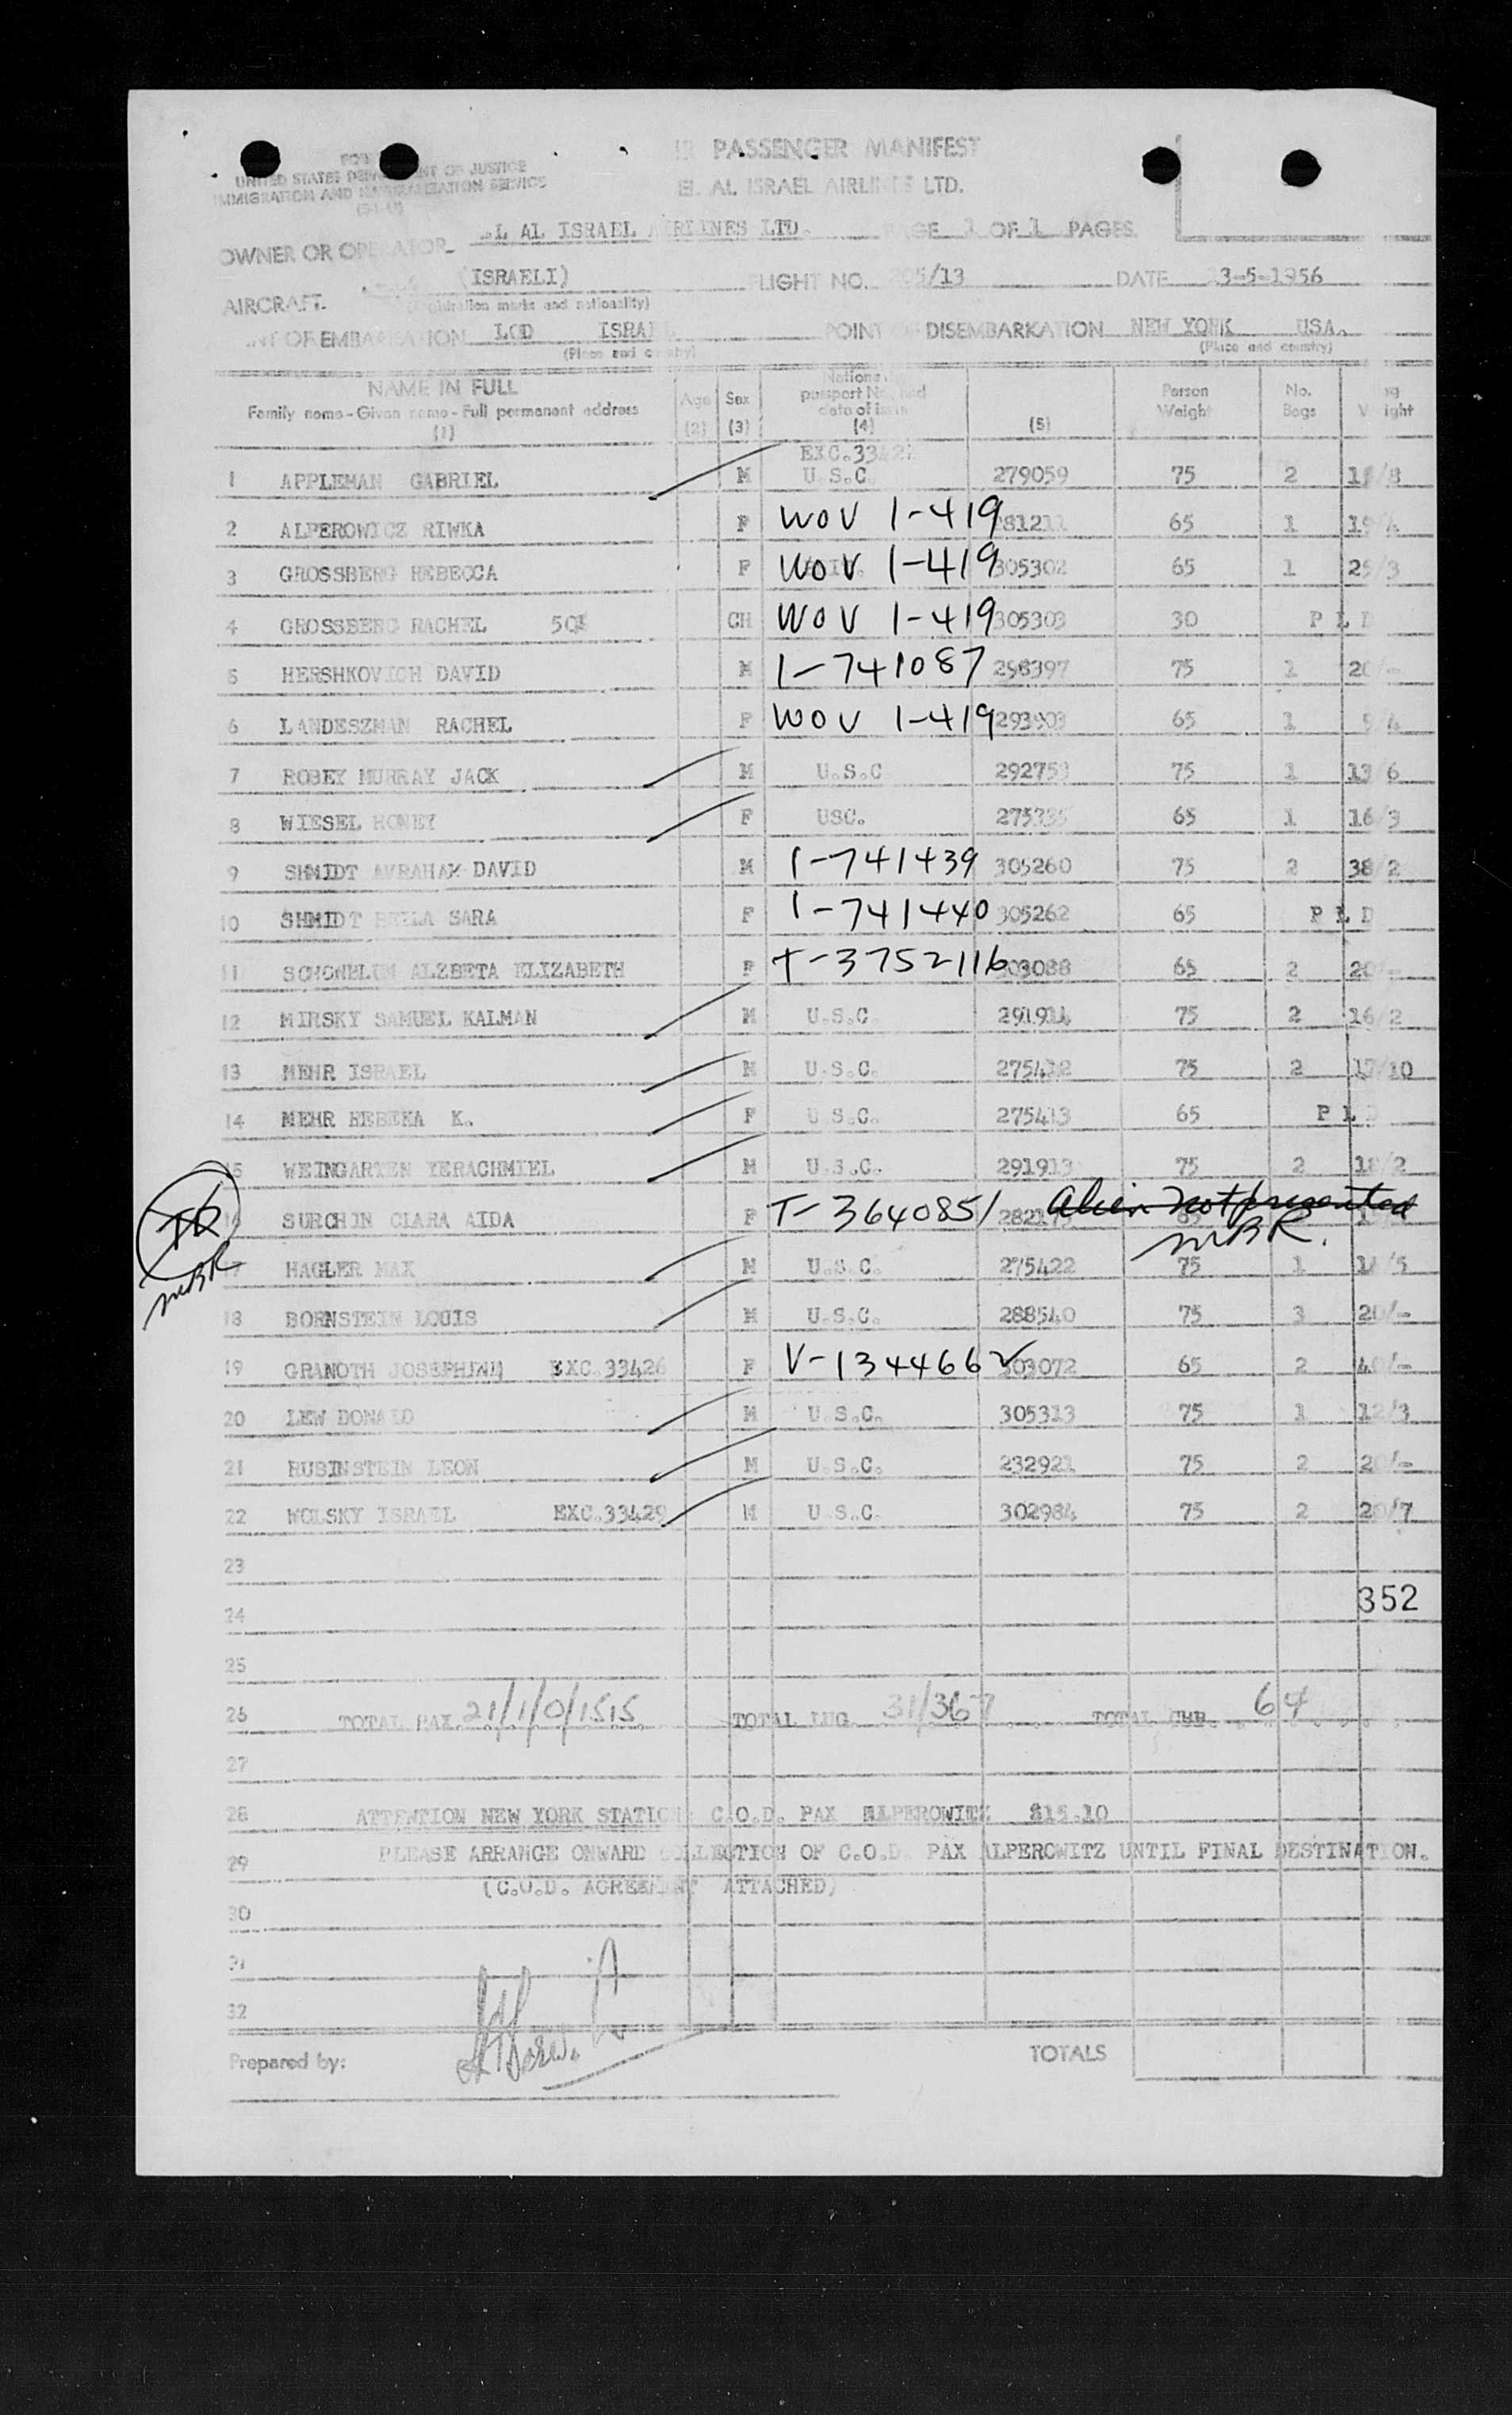 PASSENGER MANIFEST
UNITED STATES DEPARTMENT OF JUSTICE
IMMIGRATION AND NATURALIZATION SERVICE
EL AL ISRAEL AIRLINES LTD.
OWNER OR OPERATOR L AL ISRAEL AIRLINES LTD. PAGE 1 OF 1 PAGES
AIRCRAFT (ISRAELI) FLIGHT NO. /13 DATE 3-5-1956
(Registration marks and nationality)
POINT OF EMBARKATION LOD ISRAEL POINT OF DISEMBARKATION NEW YORK USA.
(Place and country) (Place and country)
NAME IN FULL Age Sex Person No.
Family name - Given name - Full permanent address passport No. and date of issue Weight Bags Weight
(1) (2) (3) (4) (5)
EXC.3342
1 APPLEMAN GABRIEL M U.S.C. 279059 75 2
2 ALPEROWICZ RIWKA F WOV 1-419 65 1
3 GROSSBERG REBECCA F WOV 1-419 305302 65 1 25/3
4 GROSSBERG RACHEL 50% CH WOV 1-419 305303 30 P L D
5 HERSHKOVICH DAVID M 1-741087 298397 75 1 20/-
6 LANDESZMAN RACHEL F WOV 1-419 293903 65 1 9/4
7 ROBEY MURRAY JACK M U.S.C 75 1 13/6
8 WIESEL HONEY F USC. 65 1 16/3
9 SHMIDT AVRAHAM DAVID M 1-741439 305260 75 2 38/2
10 SHMIDT BEILA SARA F 1-741440 305262 65 P L D
11 SCHONBLUM ALZBETA ELIZABETH F T-3752116 303088 65 2 20/-
12 MIRSKY SAMUEL KALMAN M U.S.C. 291914 75 2 16/2
13 MEHR ISRAEL M U.S.C. 275412 75 2 17/10
14 MEHR REBEKA K. F U.S.C. 275413 65 P L D
15 WEINGARTEN YERACHMIEL M U.S.C. 291913 75 2 18/2
TR 16 SURCHIN CLARA AIDA F T-3640851 Alien not presented
MBR MBR.
17 HAGLER MAX M U.S.C. 275422 75 1
18 BORNSTEIN LOUIS M U.S.C. 288540 75 3 20/-
19 GRANOTH JOSEPHINE EXC.33426 F V-1344662 303072 65 2 40/-
20 LEW DONALD M U.S.C. 305313 75 1 12/3
21 RUBINSTEIN LEON M U.S.C. 232921 75 2 20/-
22 WOLSKY ISRAEL EXC.33429 M U.S.C. 302984 75 2 20/7
23
24 352
25
26 TOTAL PAX 21/1/0/1515 TOTAL LUG. 31/367 TOTAL 64
27
28 ATTENTION NEW YORK STATION: C.O.D. PAX ALPEROWITZ 215.10
29 PLEASE ARRANGE ONWARD COLLECTION OF C.O.D. PAX ALPEROWITZ UNTIL FINAL DESTINATION.
(C.O.D. AGREEMENT ATTACHED)
30
31
32
Prepared by: TOTALS